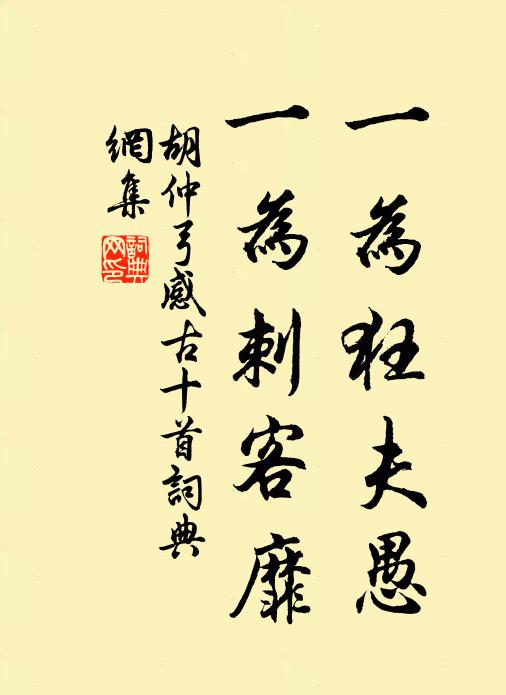 一為狂夫愚
一為刺客靡
胡仲弓感古十首詞典
網集
詞典
网印